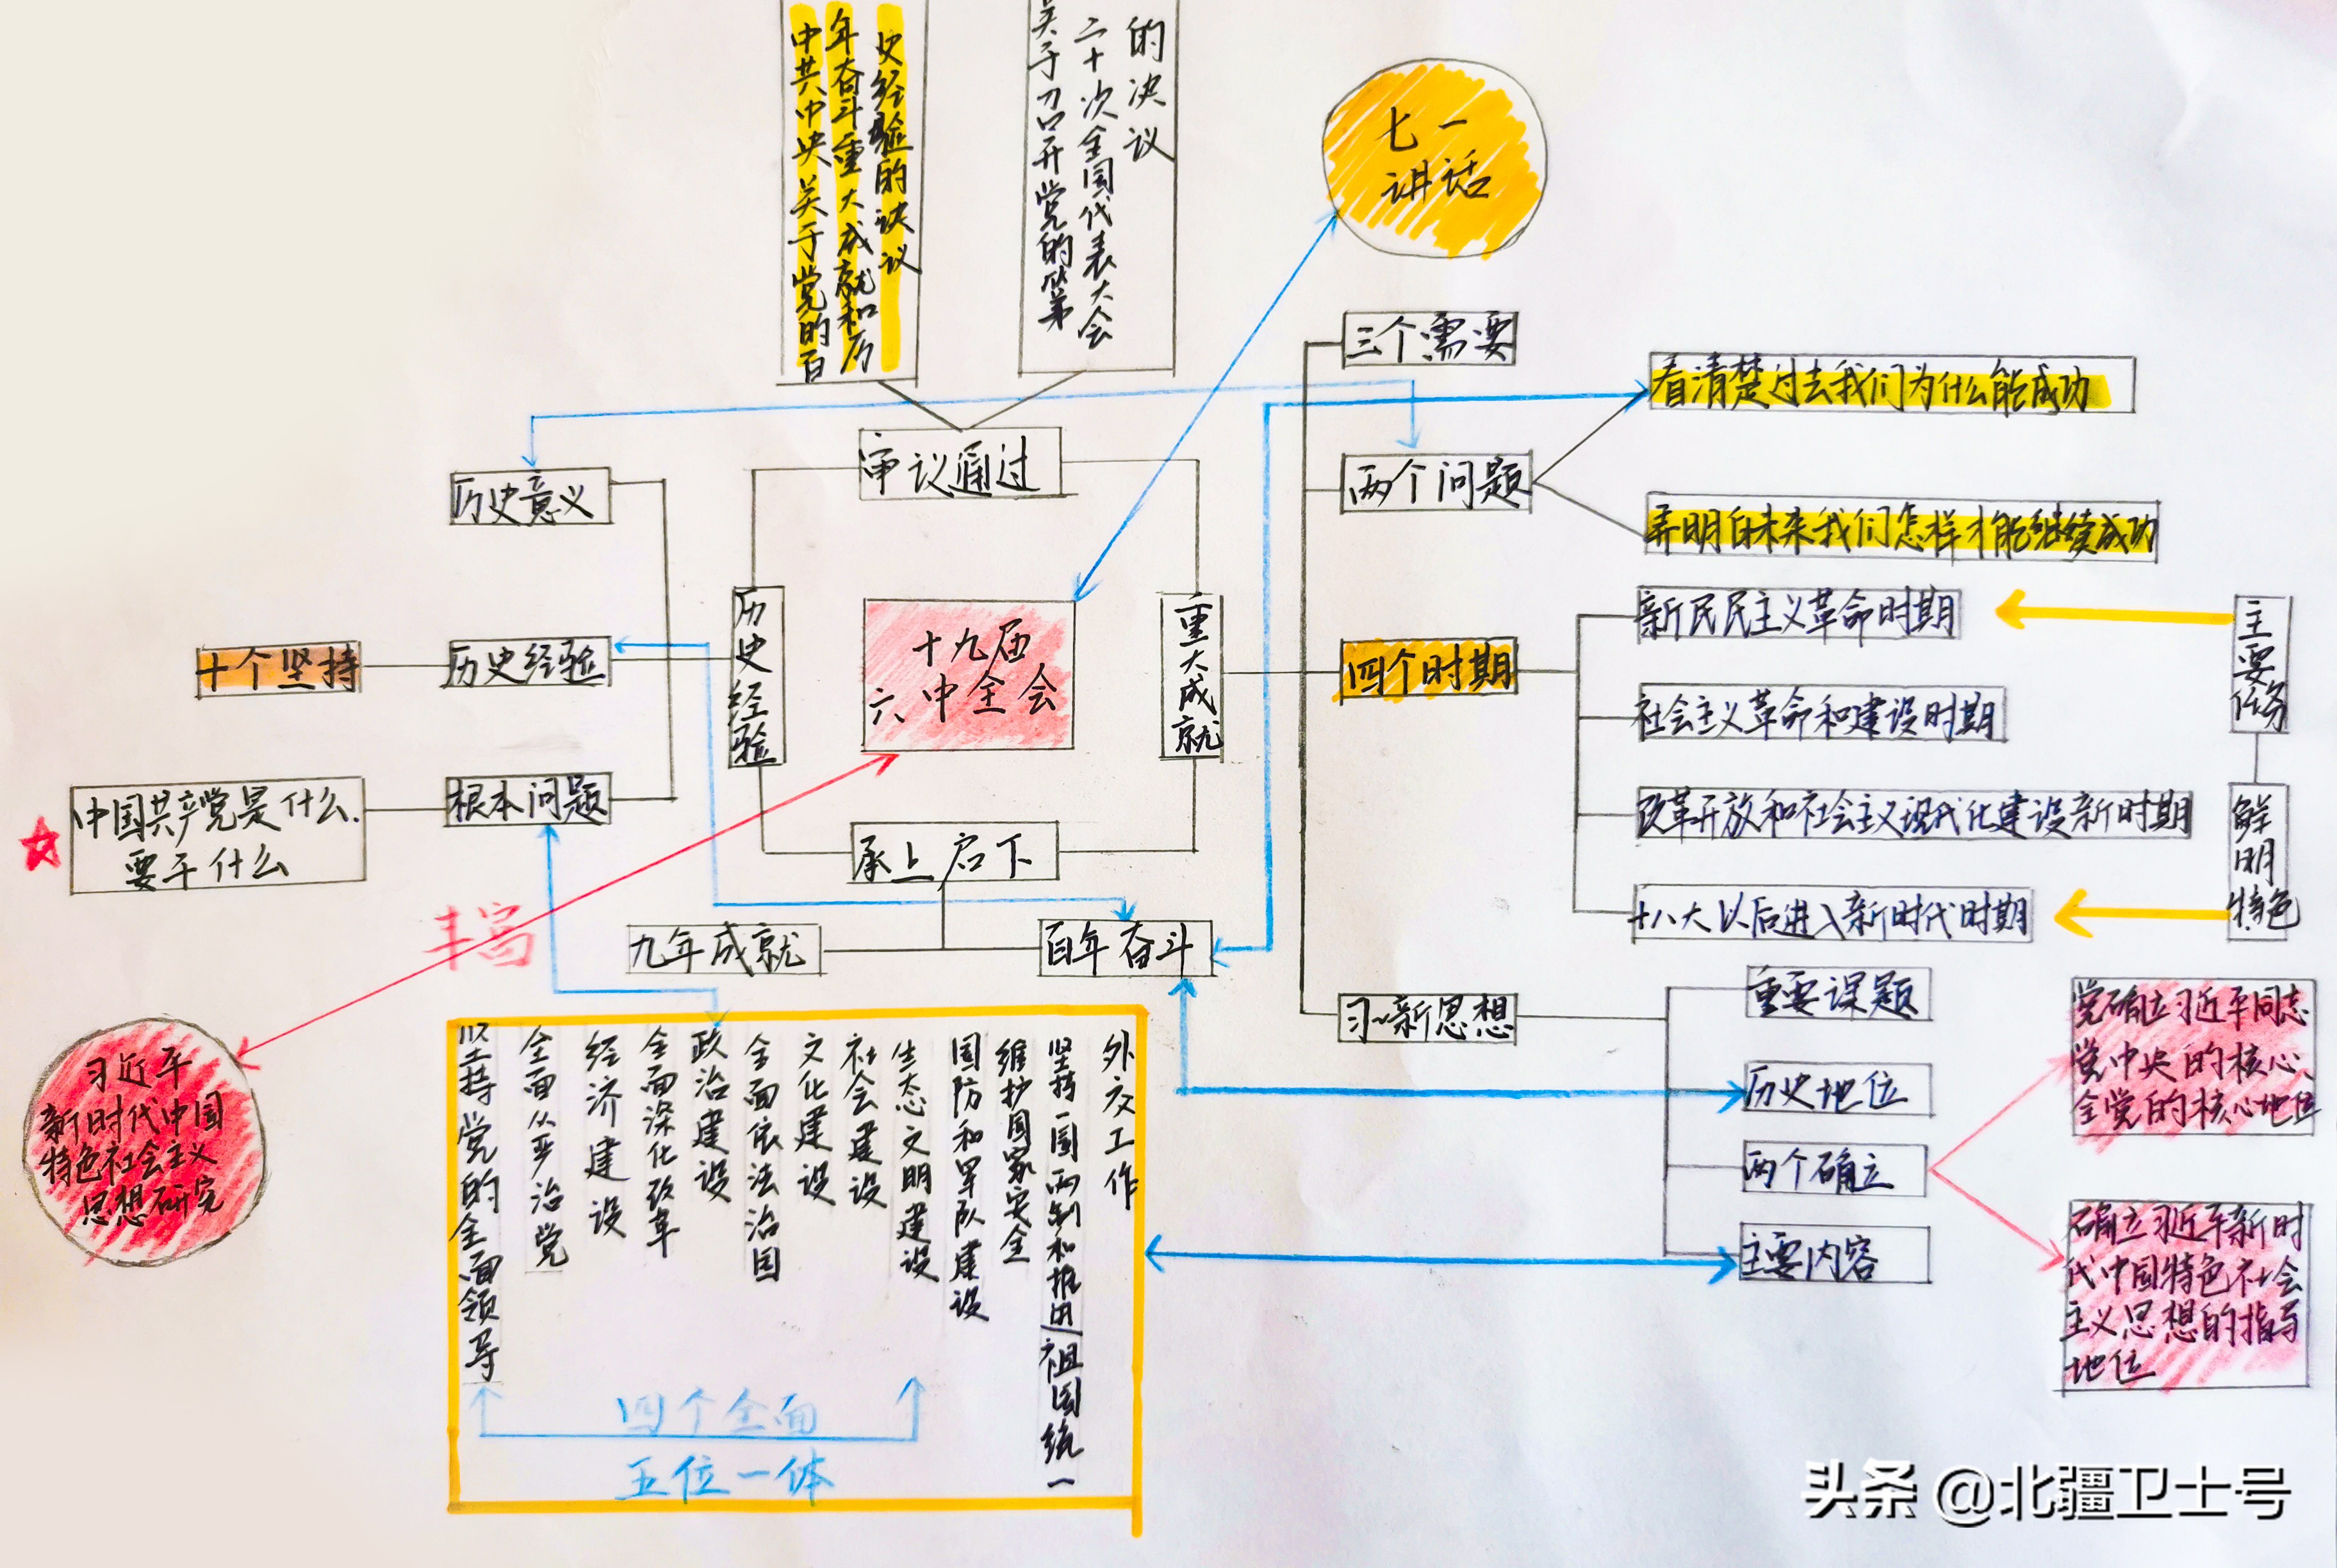 中共中央关于党的百
年奋斗重大成就和历
史经验的决议
关于召开党的第
二十次全国代表大会
的决议
七一
讲话
三个需要
看清楚过去我们为什么能成功
审议通过
两个问题
历史意义
弄明白未来我们怎样才能继续成功
历史经验
十九届
六中全会
重大成就
新民民主义革命时期
主要任务
十个坚持
历史经验
四个时期
社会主义革命和建设时期
中国共产党是什么.
要干什么
根本问题
改革开放和社会主义现代化建设新时期
鲜明特色
承上启下
十八大以后进入新时代时期
丰富
九年成就
百年奋斗
习~新思想
重要课题
历史地位
两个确立
主要内容
党确立习近平同志
党中央的核心、
全党的核心地位
确立习近平新时
代中国特色社会
主义思想的指导
地位
习近平
新时代中国
特色社会主义
思想研究
坚持党的全面领导
全面从严治党
经济建设
全面深化改革
政治建设
全面依法治国
文化建设
社会建设
生态文明建设
国防和军队建设
维护国家安全
坚持一国两制和推进祖国统一
外交工作
四个全面
五位一体
头条 @北疆卫士号